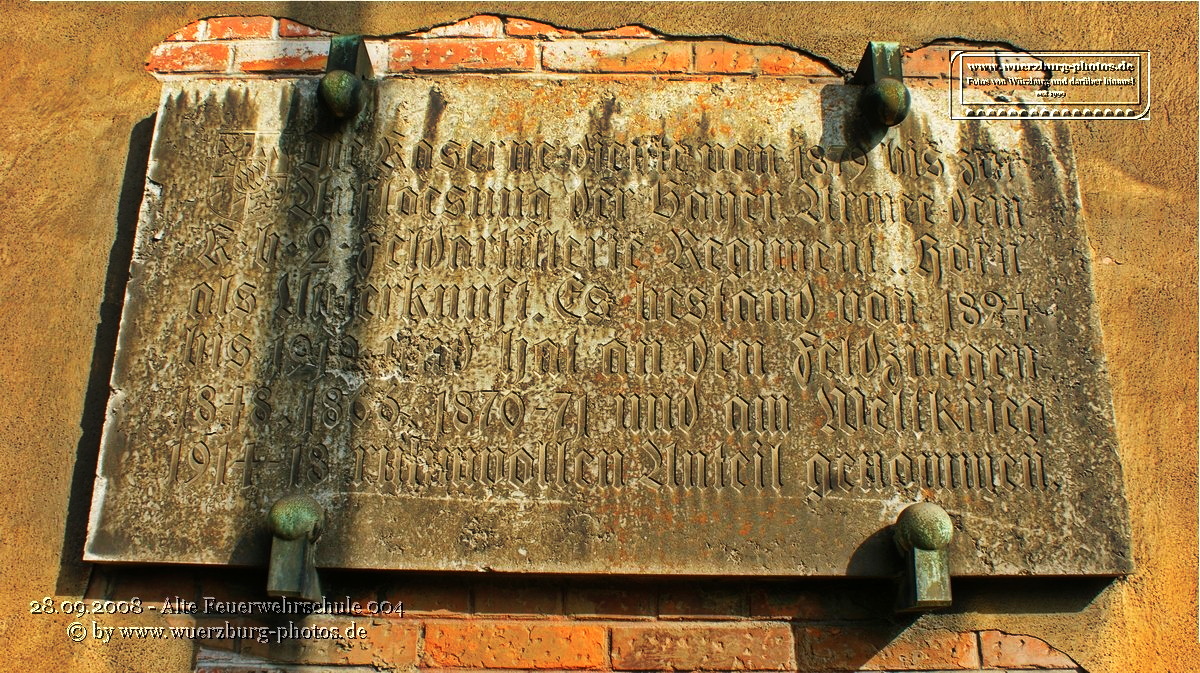 www.wuerzburg-photos.de
Fotos von Würzburg und darüber hinaus!
seit 1999
Die Kaserne diente vom 1879 bis zur
Aufloesung der Bayer. Armee dem
K. b. 2. Feldartillerie Regiment „Horn"
als Unterkunft. Es bestand von 1824-
bis und hat an den Feldzuegen
1848, 1866, 1870-71 und am Weltkrieg
1914-18 ruhmvollen Anteil genommen.
28.09.2008 - Alte Feuerwehrschule 004
© by www.wuerzburg-photos.de